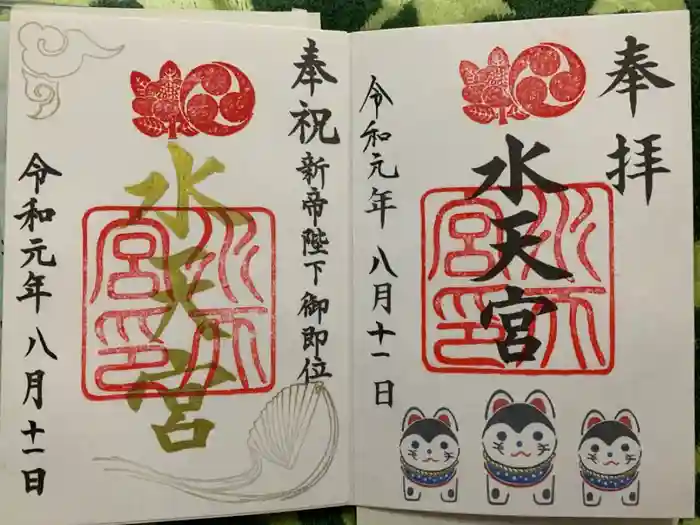 奉拝
水天宮
水天宮印
令和元年八月十一日
奉祝
新帝陛下御即位
水天宮
水天宮印
令和元年八月十一日